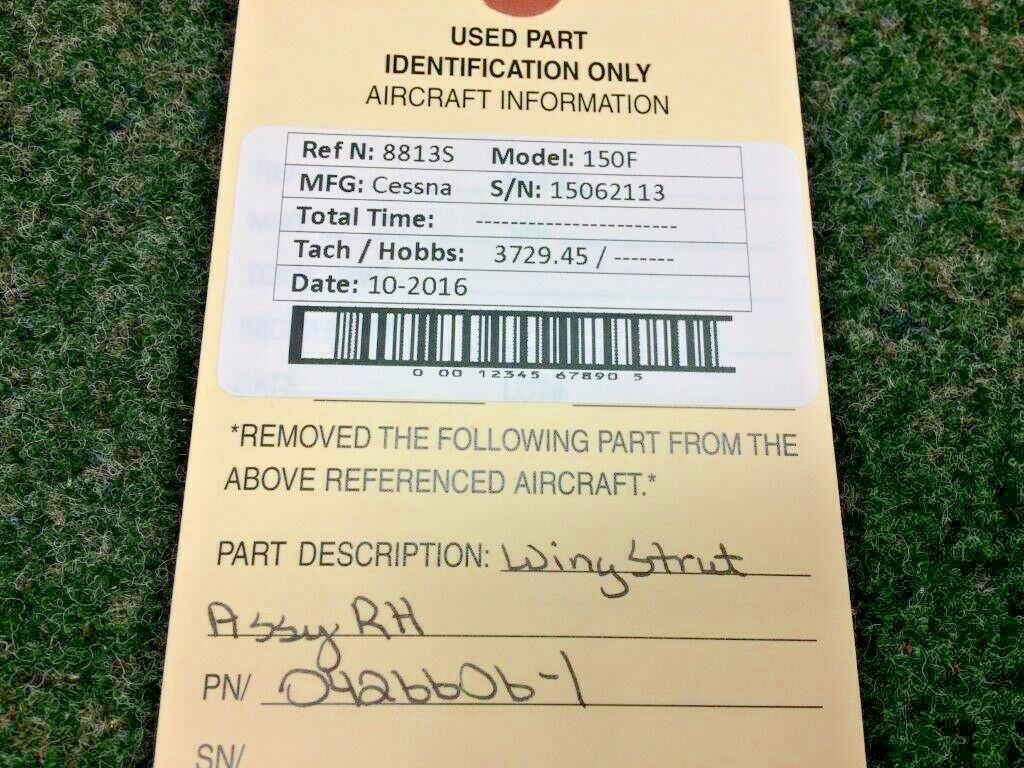 USED PART
IDENTIFICATION ONLY
AIRCRAFT INFORMATION
Ref N: 8813S Model: 150F
MFG: Cessna S/N: 15062113
Total Time: -----------------------
Tach / Hobbs: 3729.45 / -------
Date: 10-2016
0 00 12345 67890 5
*REMOVED THE FOLLOWING PART FROM THE
ABOVE REFERENCED AIRCRAFT.*
PART DESCRIPTION: Wing Strut
Assy RH
PN/ 0426606-1
SN/